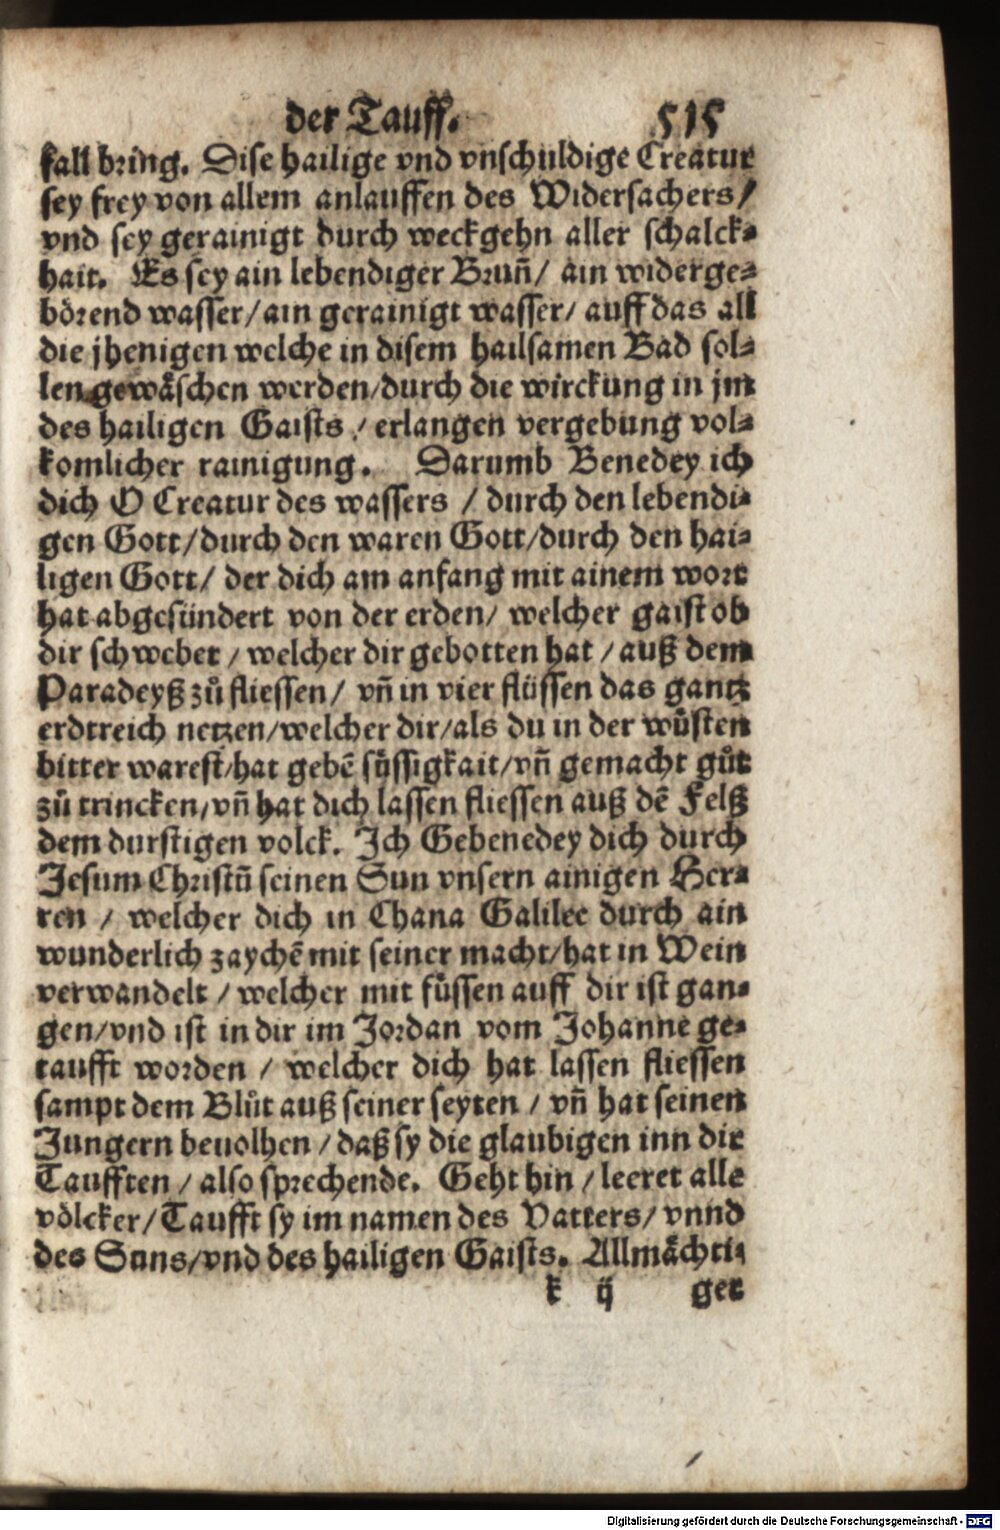 der Tauff. 515
fall bring. Dise hailige vnd vnschuldige Creatur
sey frey von allem anlauffen des Widersachers/
vnd sey gerainigt durch weckgehn aller schalck-
hait. Es sey ain lebendiger Brun̄/ ain widerge-
börend wasser/ain gerainigt wasser/ auff das all
die jhenigen welche in disem hailsamen Bad sol-
len gewäschen werden/durch die wirckung in jm
des hailigen Gaists / erlangen vergebung vol-
komlicher rainigung. Darumb Benedey ich
dich O Creatur des wassers / durch den lebendi-
gen Gott/durch den waren Gott/durch den hai-
ligen Gott/ der dich am anfang mit ainem wort
hat abgesündert von der erden/ welcher gaist ob
dir schwebet / welcher dir gebotten hat / auß dem
Paradeyß zů fliessen/ vn̄ in vier flüssen das gantz
erdtreich netzen/welcher dir/als du in der wůsten
bitter warest/hat gebē sůssigkait/vn̄ gemacht gůt
zů trincken/vn̄ hat dich lassen fliessen auß dē Felß
dem durstigen volck. Ich Gebenedey dich durch
Jesum Christū seinen Sun vnsern ainigen Her-
ren / welcher dich in Chana Galilee durch ain
wunderlich zaychē mit seiner macht/hat in Wein
verwandelt / welcher mit fůssen auff dir ist gan-
gen/vnd ist in dir im Jordan vom Johanne ge-
taufft worden / welcher dich hat lassen fliessen
sampt dem Blůt auß seiner seyten / vn̄ hat seinen
Jungern beuolhen / daß sy die glaubigen inn dir
Taufften / also sprechende. Geht hin / leeret alle
völcker/Taufft sy im namen des Vatters/ vnnd
des Suns/vnd des hailigen Gaists. Allmächti-
k ij ger
Digitalisierung gefördert durch die Deutsche Forschungsgemeinschaft - DFG